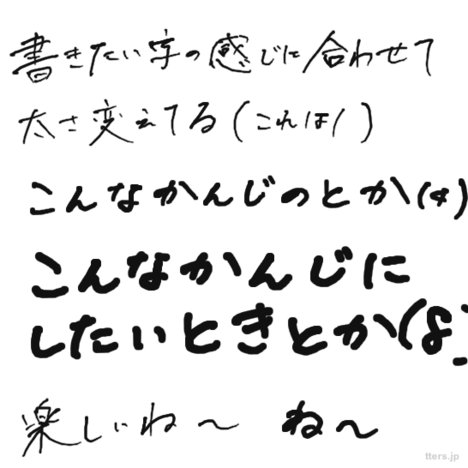 書きたい字の感じに合わせて
太さ変えてる(これは1)
こんなかんじのとか(4)
こんなかんじに
したいときとか(8
楽しいね〜 ね〜
tters.jp